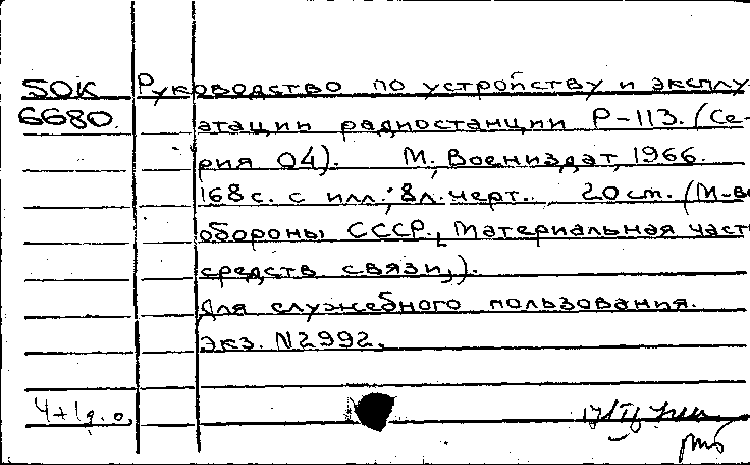 50К Руководство по устройству и эксплу-
6680. атации радиостанции Р-113. (Се-
рия 04). М., Воениздат, 1966.
168 с. с илл.; 8 л. черт. 20 см. (М-во
обороны СССР. Материальная часть
средств связи).
Для служебного пользования.
Экз. N2992.
4+1д.о.